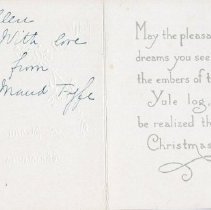 Ellen
With love
from
Maud Fyfe
May the pleasa
dreams you see
the embers of t
Yule log
be realized th
Christmas